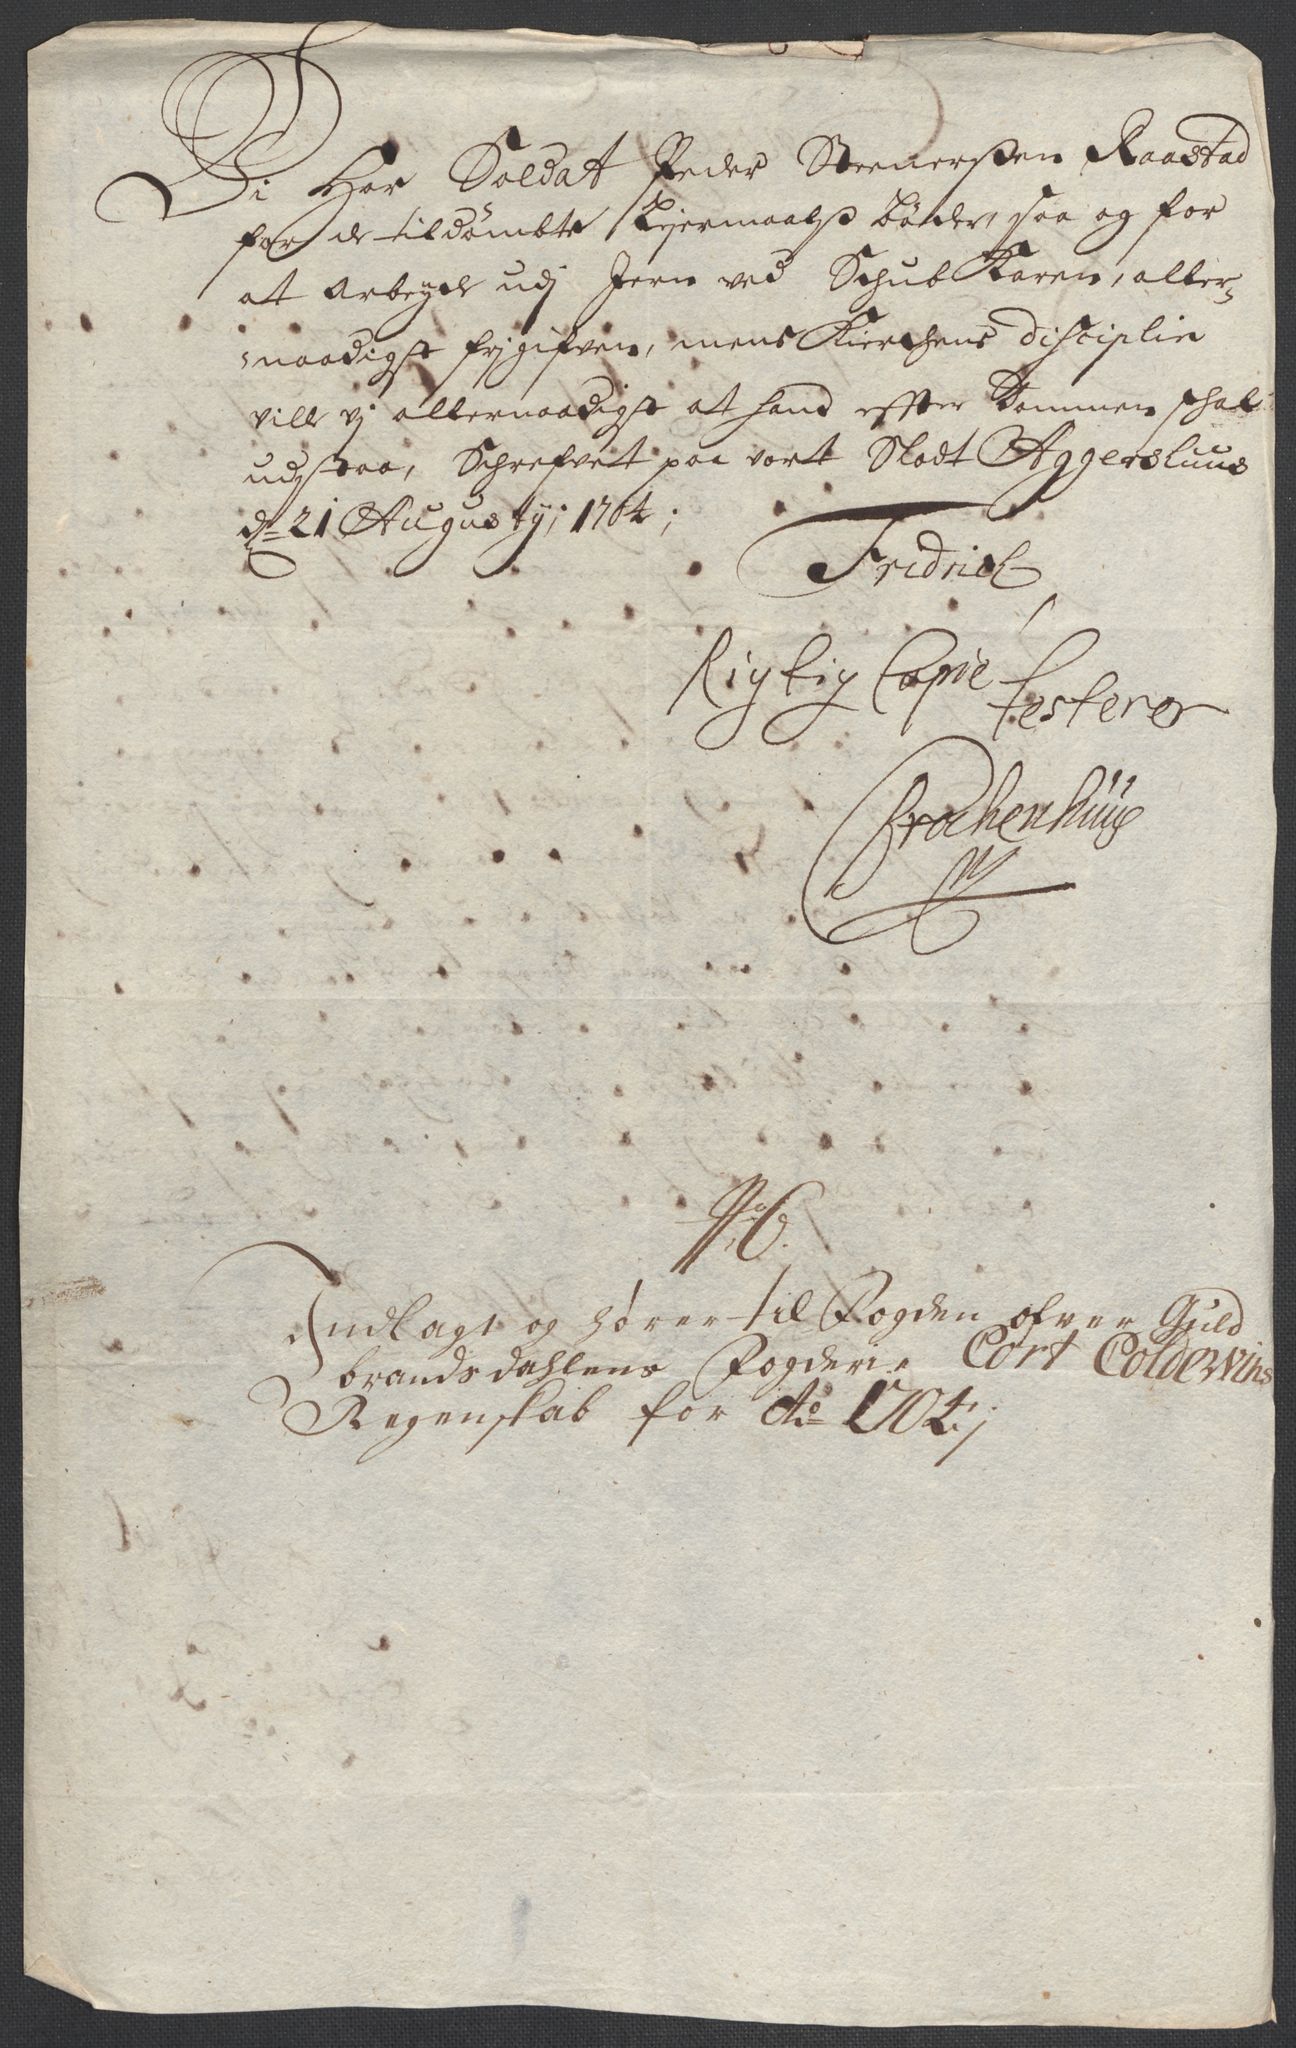 Vi Har Soldat Peder Steenerssen Raastad
for de tildömbte Leyermaalss Böder, saa og for
at Arbeyde udj Jern ved SchubKaren, aller-
naadigst frjgifven, mens Kierchens disciplin
ville vj allernaadigst at hand effter Dommen schal
udstaa, Schrefvet paa vort Slodt Aggershuus
d 21 Augustij; 1704;
Fridrich
Rigtig Copie testerer
Brochenhuus
No 6.
Indlagt og hörer til Fogden ofver Guld
brandsdahlens Fogderie Cort Coldewins
Regenskab for Ao 1704;